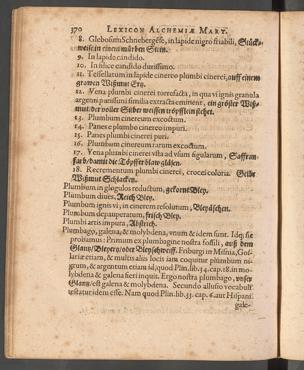 370 LEXICON ALCHEMIÆ MART.
8. Glebosum Schnebergēse, in lapide nigro friabili, Stück-
weise in einem mürben Stein.
9. In lapide candido.
10. In silice candido durissimo.
11. Tessellatum in lapide cinereo plumbi cinerei, auff einem
growen Wißmut Ertz.
12. Vena plumbi cinerei torrefacta, in qua vi ignis granula
argenti parissimi similia extracta eminent, ein geröster Wiß-
mut der voller Silber weissen tröpfflein stehet.
13. Plumbum cinereum excoctum.
14. Panes è plumbo cinereo impuri.
15. Panes plumbi cinerei puri.
16. Plumbum cinereum rarum excoctum.
17. Vena plumbi cinerei vsta ad vsum figularum, Saffran-
farb/damit die Töpffer blaw glåsen.
18. Recrementum plumbi cinerei, crocei coloris. Gelbe
Wißmut Schlacken.
Plumbum in glogulos reductum, gekörnt Bley.
Plumbum diues, Reich Bley.
Plumbum ignis vi, in cinerem resolutum, Bleyäschen.
Plumbum depauperatum, frisch Bley.
Plumbi artis impura, Abstrich.
Plumbago, galena, & molybdena, vnum & idem sunt. Idq; sic
probamus: Primum ex plumbagine nostra fossili, auß dem
Glantz/Bleyertz/oder Bleyschweiff. Friburgi in Misnia, Gos-
lariæ etiam, & multis aliis locis iam coquitur plumbum ni-
grum, & argentum etiam id, quod Plin. lib. 34. cap. 18. in mo-
lybdena & galena fieri inquit. Ergo nostra plumbago, vnser
Glantz/est galena & molybdena. Secundo allusio vocabuli
testatur idem esse. Nam quod Plin. lib. 33. cap. 6. aut Hispani
gale-